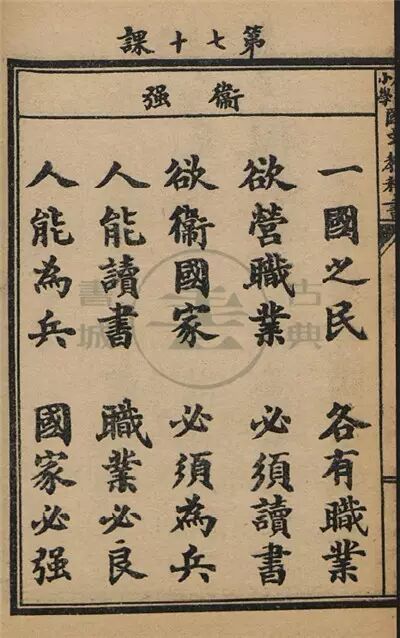 第七十課
衛强
一國之民 各有職業
欲營職業 必須讀書
欲衛國家 必須為兵
人能讀書 職業必良
人能為兵 國家必强
小學
古典書城